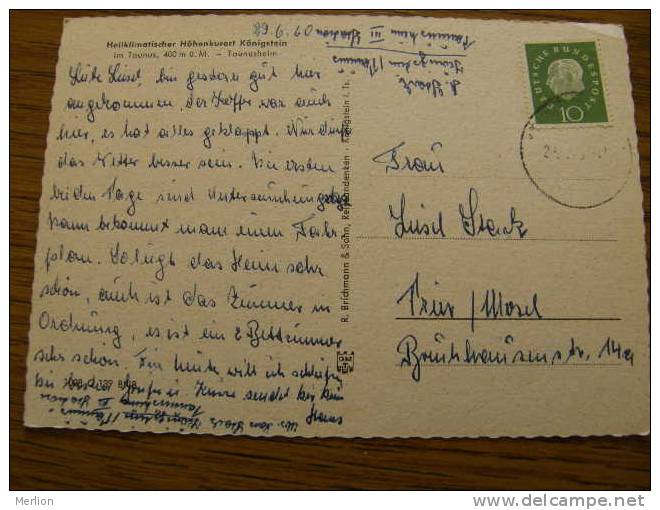 Heilklimatischer Höhenkurort Königstein
im Taunus, 400 m ü. M. — Taunusheim
Liebe Liesel, bin gestern gut hier
angekommen, der Koffer war auch
hier, es hat alles geklappt. Nur dürfte
das Wetter besser sein. Die ersten
beiden Tage sind Untersuchungstage
dann bekommt man einen Fahr
plan. So liegt das Heim sehr
schön, auch ist das Zimmer in
Ordnung, es ist ein 2 Bettzimmer
sehr schön. Für heute will ich schließen
Hans
Königstein / Taunus
Taunusheim III
R. Brichmann & Sohn, Reiseandenken, Königstein i. Ts.
DEUTSCHE BUNDESPOST
10
Frau
Liesel Stack
Trier / Mosel
Bruchhausenstr. 14a
Merlion
http://www.delcampe.net